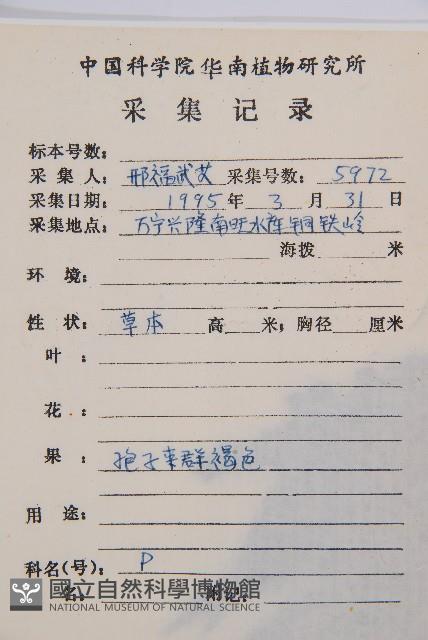 中国科学院华南植物研究所
采集记录
标本号数:
采集人: 邢福武 采集号数: 5972
采集日期: 1995年3月31日
采集地点: 万宁兴隆南旺水库铜铁岭
海拨 米
环境:
性状: 草本 高 米; 胸径 厘米
叶:
花:
果: 孢子囊群褐色
用途:
科名(号): P
名: 附记:
國立自然科學博物館
NATIONAL MUSEUM OF NATURAL SCIENCE